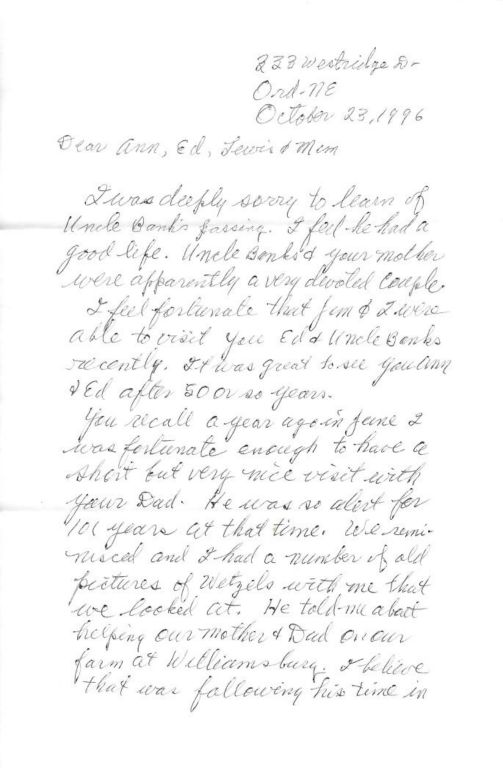 233 Westridge Dr
Ord-NE
October 23, 1996
Dear Ann, Ed, Lewis & Mim
I was deeply sorry to learn of
Uncle Bank's passing. I feel he had a
good life. Uncle Banks & your mother
were apparently a very devoted couple.
I feel fortunate that Jim & I were
able to visit you Ed & Uncle Banks
recently. It was great to see you Ann
& Ed after 50 or so years.
You recall a year ago in June I
was fortunate enough to have a
short but very nice visit with
your Dad. He was so alert for
101 years at that time. We remi-
nisced and I had a number of old
pictures of Wetzels with me that
we looked at. He told me about
helping our mother & Dad on our
farm at Williamsburg. I believe
that was following his time in